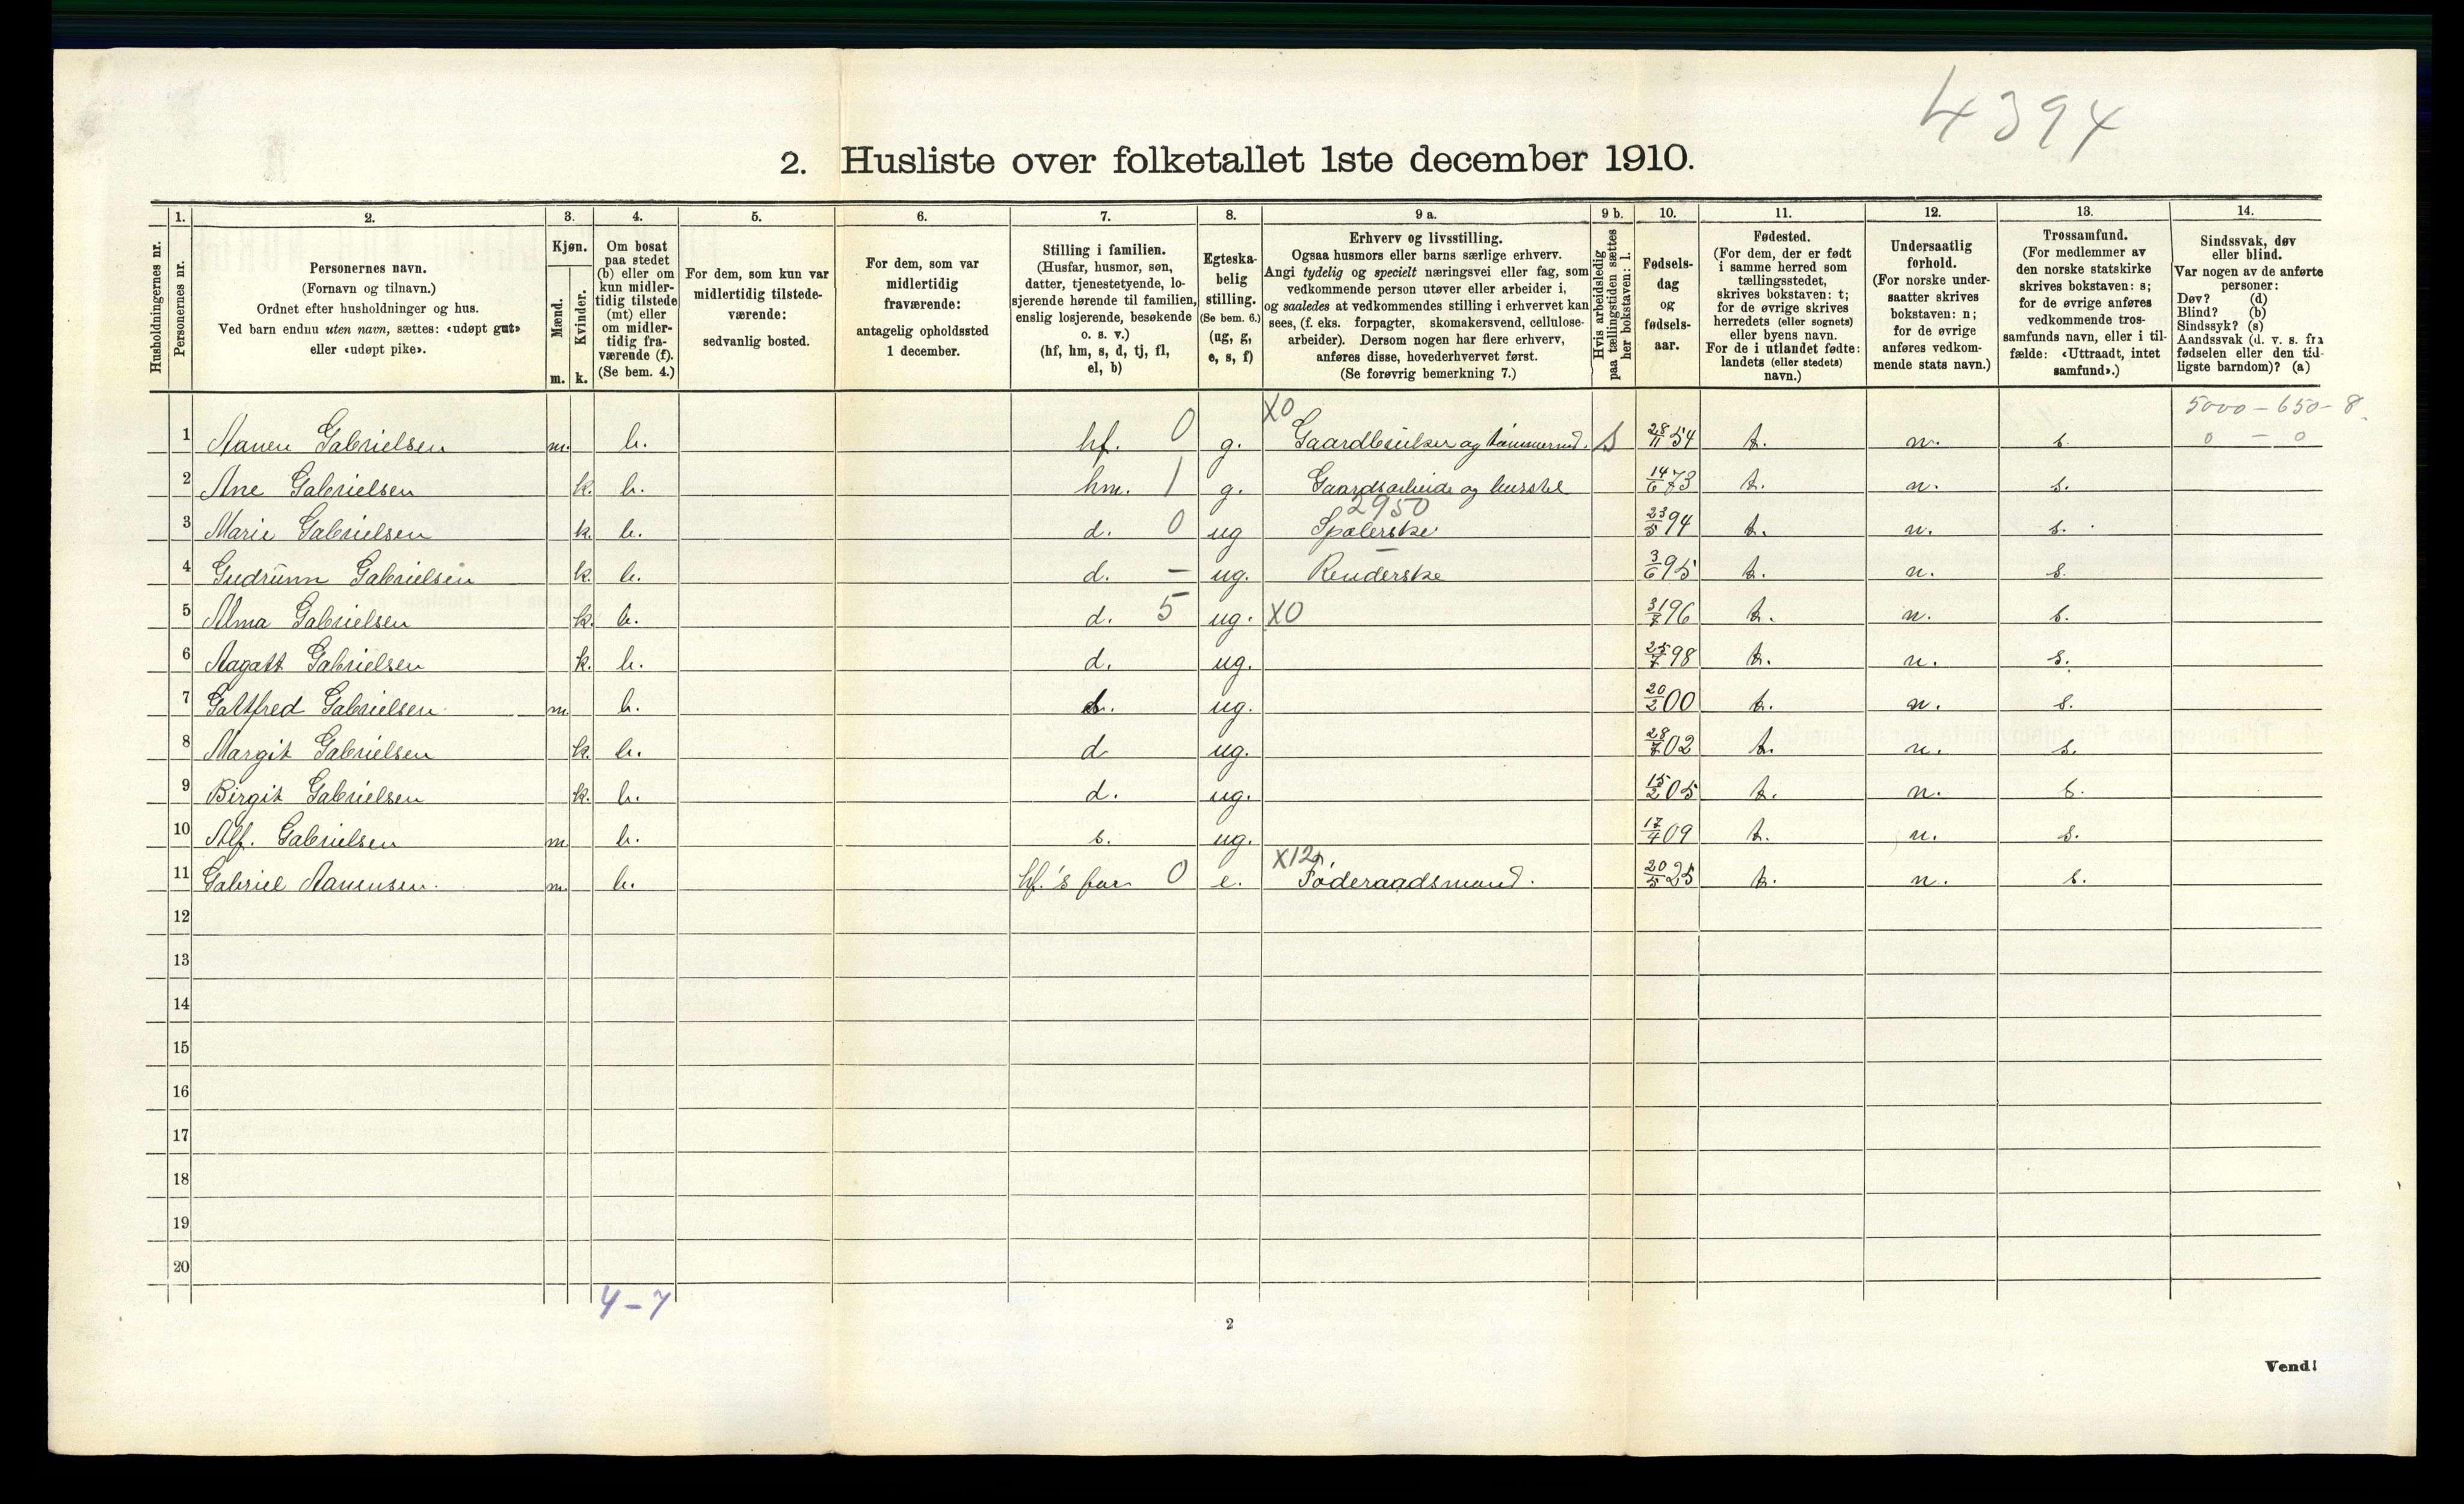 4394
2. Husliste over folketallet 1ste december 1910.
Husholdningernes nr.
1.
Personernes nr.
2.
Personernes navn.
(Fornavn og tilnavn.)
Ordnet efter husholdninger og hus.
Ved barn endnu uten navn, sættes: «udøpt gut»
eller «udøpt pike».
3.
Kjøn.
Mænd.
Kvinder.
m. k.
4.
Om bosat
paa stedet
(b) eller om
kun midler-
tidig tilstede
(mt) eller
om midler-
tidig fra-
værende (f).
(Se bem. 4.)
5.
For dem, som kun var
midlertidig tilstede-
værende:
sedvanlig bosted.
6.
For dem, som var
midlertidig
fraværende:
antagelig opholdssted
1 december.
7.
Stilling i familien.
(Husfar, husmor, søn,
datter, tjenestetyende, lo-
sjerende hørende til familien,
enslig losjerende, besøkende
o. s. v.)
(hf, hm, s, d, tj, fl,
el, b)
8.
Egteska-
belig
stilling.
(Se bem. 6.)
(ug, g,
e, s, f)
9 a.
Erhverv og livsstilling.
Ogsaa husmors eller barns særlige erhverv.
Angi tydelig og specielt næringsvei eller fag, som
vedkommende person utøver eller arbeider i,
og saaledes at vedkommendes stilling i erhvervet kan
sees, (f. eks. forpagter, skomakersvend, cellulose-
arbeider). Dersom nogen har flere erhverv,
anføres disse, hovederhvervet først.
(Se forøvrig bemerkning 7.)
9 b.
Hvis arbeidsledig
paa tællingstiden sættes
her bokstaven: l.
10.
Fødsels-
dag
og
fødsels-
aar.
11.
Fødested.
(For dem, der er født
i samme herred som
tællingsstedet,
skrives bokstaven: t;
for de øvrige skrives
herredets (eller sognets)
eller byens navn.
For de i utlandet fødte:
landets (eller stedets)
navn.)
12.
Undersaatlig
forhold.
(For norske under-
saatter skrives
bokstaven: n;
for de øvrige
anføres vedkom-
mende stats navn.)
13.
Trossamfund.
(For medlemmer av
den norske statskirke
skrives bokstaven: s;
for de øvrige anføres
vedkommende tros-
samfunds navn, eller i til-
fælde: «Uttraadt, intet
samfund».)
14.
Sindssvak, døv
eller blind.
Var nogen av de anførte
personer:
Døv? (d)
Blind? (b)
Sindssyk? (s)
Aandssvak (d. v. s. fra
fødselen eller den tid-
ligste barndom)? (a)
X0 5000 - 650 - 8
1 Aanen Gabrielsen m. b. hf. 0 g. Gaardbruker og tømmermd. 28/11 54 t. n. s. 0 - 0
2 Ane Gabrielsen k. b. hm. 1 g. Gaardsarbeide og husstel 14/6 73 t. n. s.
2950
3 Marie Gabrielsen k. b. d. 0 ug Spolerske 23/5 94 t. n. s.
4 Gudrunn Gabrielsen k. b. d. - ug. Renderske 3/6 95 t. n. s.
5 Alma Gabrielsen k. b. d. 5 ug. X0 31/7 96 t. n. s.
6 Aagatt Gabrielsen k. b. d. ug. 25/7 98 t. n. s.
7 Gottfred Gabrielsen m b. s. ug. 20/2 00 t. n. s.
8 Margit Gabrielsen k. b. d ug. 28/7 02 t. n. s.
9 Birgit Gabrielsen k. b. d. ug. 15/2 05 t. n. s.
10 Alf. Gabrielsen m b. s. ug. 17/4 09 t. n. s.
X12
11 Gabriel Aanensen. m b. hf.'s far 0 e. Føderaadsmand. 20/5 25 t. n. s.
12
13
14
15
16
17
18
19
20
4-7
2
Vend!